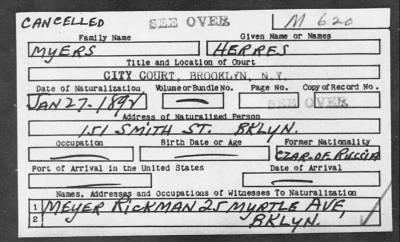 CANCELLED SEE OVER M 620
Family Name Given Name or Names
MYERS HERRES
Title and Location of Court
CITY COURT, BROOKLYN, N.Y.
Date of Naturalization Volume or Bundle No. Page No. Copy of Record No.
JAN 27-1892 — SEE OVER
Address of Naturalized Person
151 SMITH ST. BKLYN.
Occupation Birth Date or Age Former Nationality
— — CZAR. OF RUSSIA
Port of Arrival in the United States Date of Arrival
— —
Names, Addresses and Occupations of Witnesses To Naturalization
1 MEYER RICKMAN 25 MYRTLE AVE,
2 BKLYN.